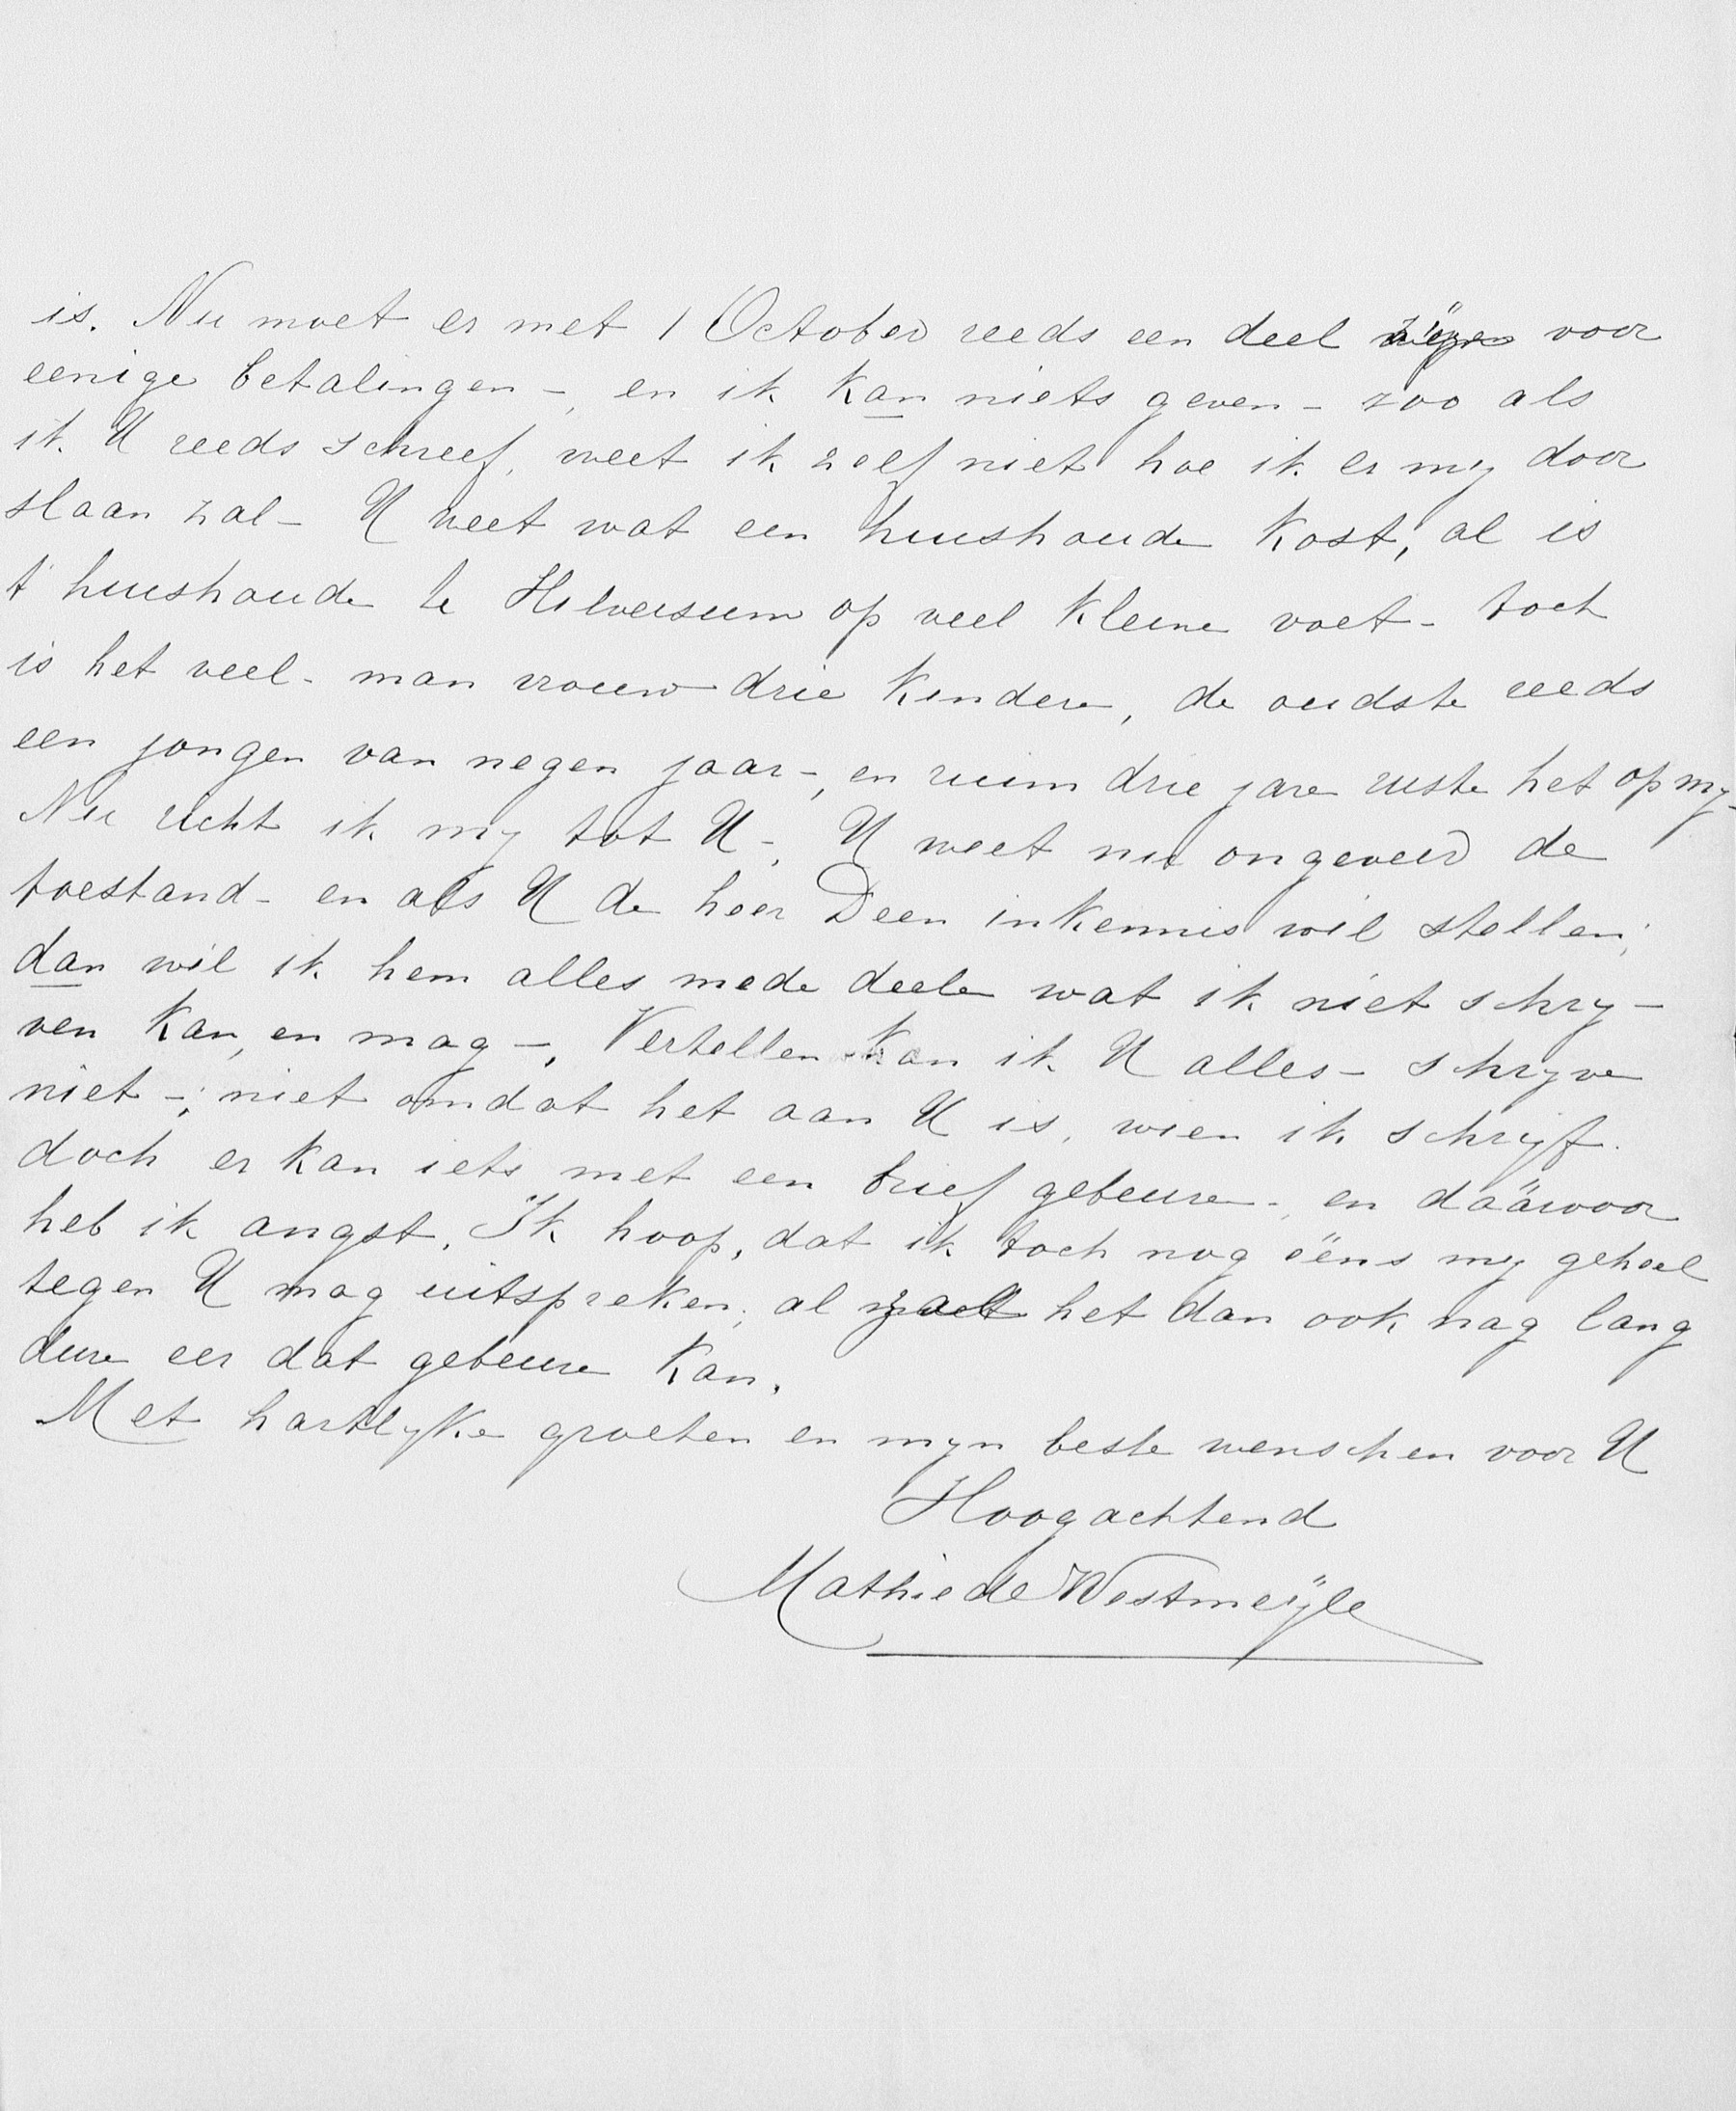 is. Nu moet er met 1 October reeds een deel zijn voor
eenige betalingen -, en ik kan niets geven - zoo als
ik U reeds schreef, weet ik zelf niet hoe ik er my door
slaan zal - U weet wat een huishoude kost, al is
't huishoude te Hilversum op veel kleine voet - toch
is het veel - man vrouw drie kindere, de oudste reeds
een jongen van negen jaar -, en ruim drie jare ruste het op my -
Nu richt ik my tot U -, U weet nu ongeveer de
toestand - en als U de heer Deen inkennis wil stellen,
dan wil ik hem alles mede deele wat ik niet schry-
ven kan, en mag -, Vertellen kan ik U alles - schryve
niet -; niet omdat het aan U is, wien ik schryf.
doch er kan iets met een brief gebeure -, en däärvoor
heb ik angst. Ik hoop, dat ik toch nog ééns my geheel
tegen U mag uitspreken, al zal het dan ook nog lang
dure eer dat gebeure kan.
Met hartlyke groeten en myn beste wenschen voor U
Hoogachtend
Mathiede Westmeÿle